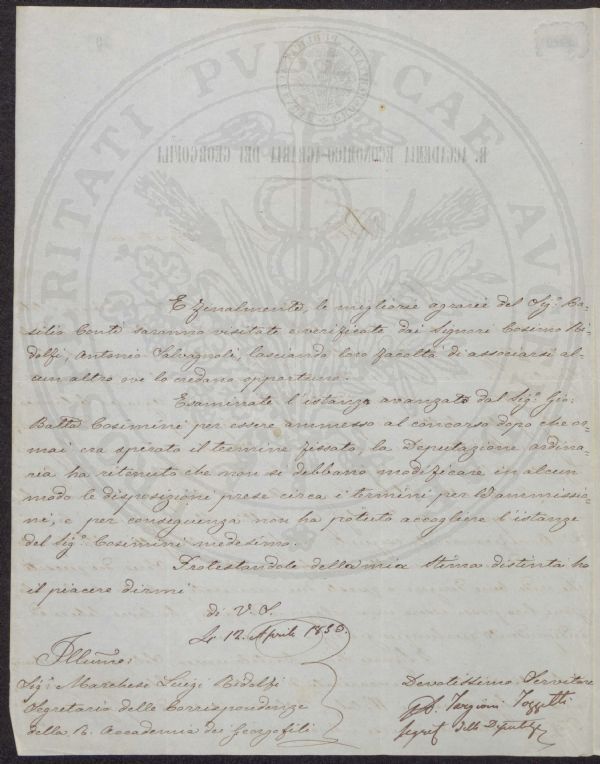 R. ACCADEMIA ECONOMICO-AGRARIA DEI GEORGOFILI
PROSPERITATI PUBLICAE AUGENDAE
E finalmente, le migliorie agrarie del Sig.r Ba-
silio Conti saranno visitate e verificate dai Signori Cosimo Ri-
dolfi, Antonio Salvagnoli, lasciando loro facoltà di associarsi al-
cun altro ove lo credano opportuno.
Esaminate l'istanza avanzata dal Sig.r Gio:
Batta Cosimini per essere ammesso al concorso dopo che or-
mai era spirato il termine fissato, la Deputazione ordina-
ria ha ritenuto che non si debbano modificare in alcun
modo le disposizioni prese circa i termini per le ammissio-
ni, e per conseguenza non ha potuto accogliere l'istanze
del Sig.r Cosimini medesimo.
Protestandole della mia stima distinta ho
il piacere dirmi
di V. S.
Li 12. Aprile 1856.
Illmo:
Sig.r Marchese Luigi Ridolfi
Segretario delle Corrispondenze
della R. Accademia dei Georgofili
Devotissimo Servitore
Targioni Tozzetti
Segret. della Deputaz.